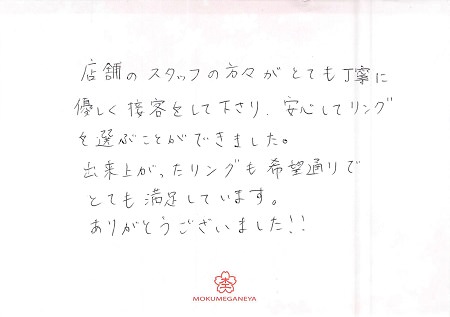 店舗のスタッフの方々がとても丁寧に
優しく接客をして下さり、安心してリング
を選ぶことができました。
出来上がったリングも希望通りで
とても満足しています。
ありがとうございました!!
杢
MOKUMEGANEYA